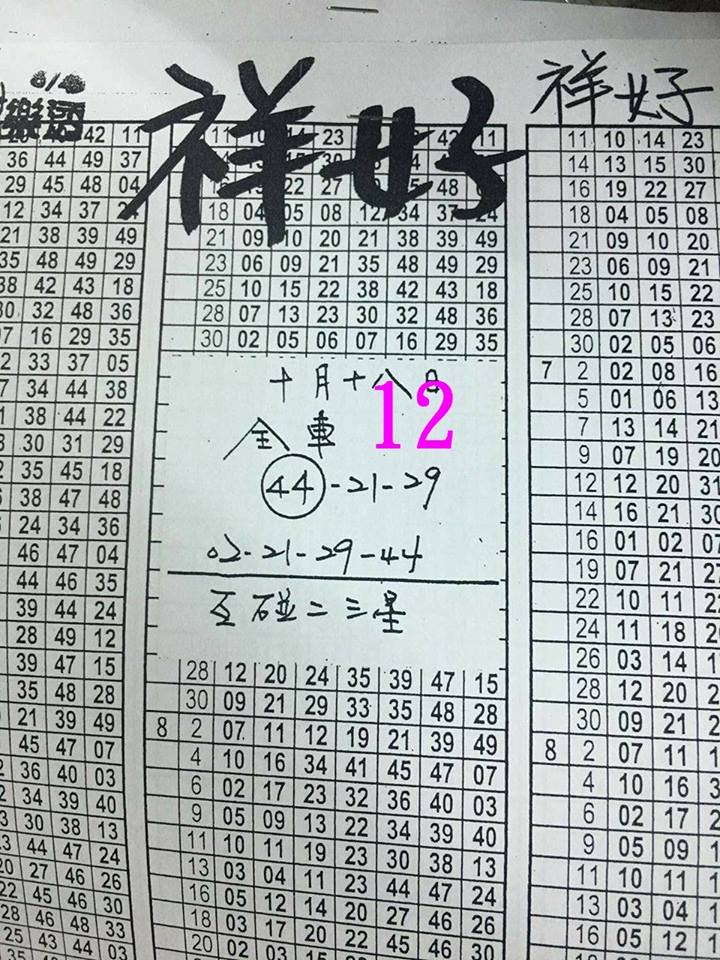 8/4
祥好
祥好
42 11
36 44 49 37
29 45 48 04
12 34 37 24
21 38 39 49
35 48 49 29
38 42 43 18
30 32 48 36
07 16 29 35
33 37 05
34 44 38
38 44 22
30 31 29
35 45 18
38 47 48
24 34 36
46 47 04
44 46 35
39 44 24
28 49 12
39 47 15
35 48 28
21 39 49
45 47 07
36 40 03
34 39 40
30 38 13
44 47 24
20 27 46 26
22 45 46 30
28 46 48 33
25 43 44 03
11 10 14 23 42 11
22 27 48
18 04 05 08 12 34 37 24
21 09 10 20 21 38 39 49
23 06 09 21 35 48 49 29
25 10 15 22 38 42 43 18
28 07 13 23 30 32 48 36
30 02 05 06 07 16 29 35
十月十八日
12
全車
44-21-29
02-21-29-44
互碰二三星
28 12 20 24 35 39 47 15
30 09 21 29 33 35 48 28
8 2 07 11 12 19 21 39 49
4 10 16 34 41 45 47 07
6 02 17 23 32 36 40 03
9 05 09 13 22 34 39 40
11 10 11 19 23 30 38 13
13 03 04 11 23 44 47 24
16 05 12 14 20 27 46 26
18 03 17 20 22 45 46 30
20 02 03
11 10 14 23
14 13 15 30
16 19 22 27
18 04 05 08
21 09 10 20
23 06 09 21
25 10 15 22
28 07 13 23
30 02 05 06
7 2 02 08 16
5 01 06 13
7 13 14 21
9 07 19 20
12 12 20 31
14 16 21 30
16 01 02 07
19 07 21 27
22 10 11
24 11 18
26 03 14
28 12 20
30 09 21
8 2 07 11
4 10 16
6 02 17
9 05 09
11 10 11
13 03 04
16 05 12